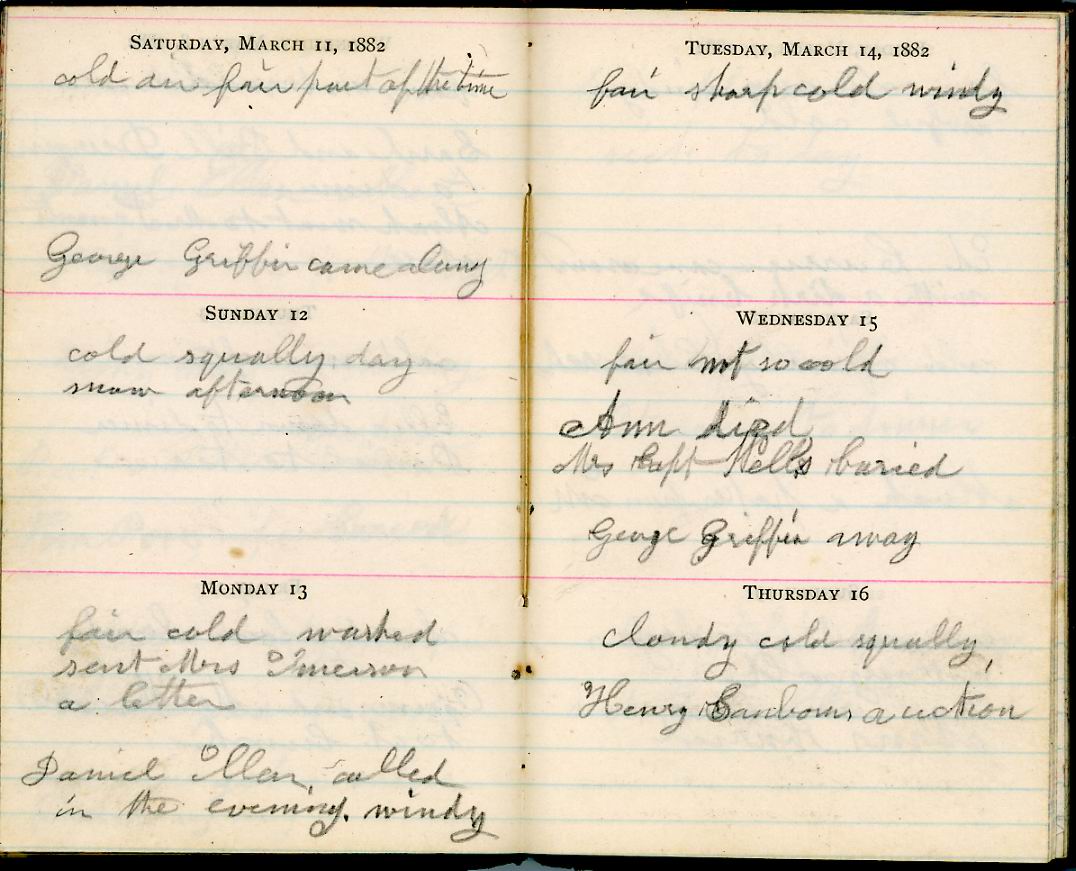 SATURDAY, MARCH 11, 1882
cold air fair part of the time
George Griffin came along
SUNDAY 12
cold squally day
snow afternoon
MONDAY 13
fair cold washed
sent Mrs Emerson
a letter
Daniel Allen called
in the evening. windy
TUESDAY, MARCH 14, 1882
fair sharp cold windy
WEDNESDAY 15
fair not so cold
Ann died
Mrs Capt Wells buried
George Griffin away
THURSDAY 16
cloudy cold squally,
Henry Sanborns auction